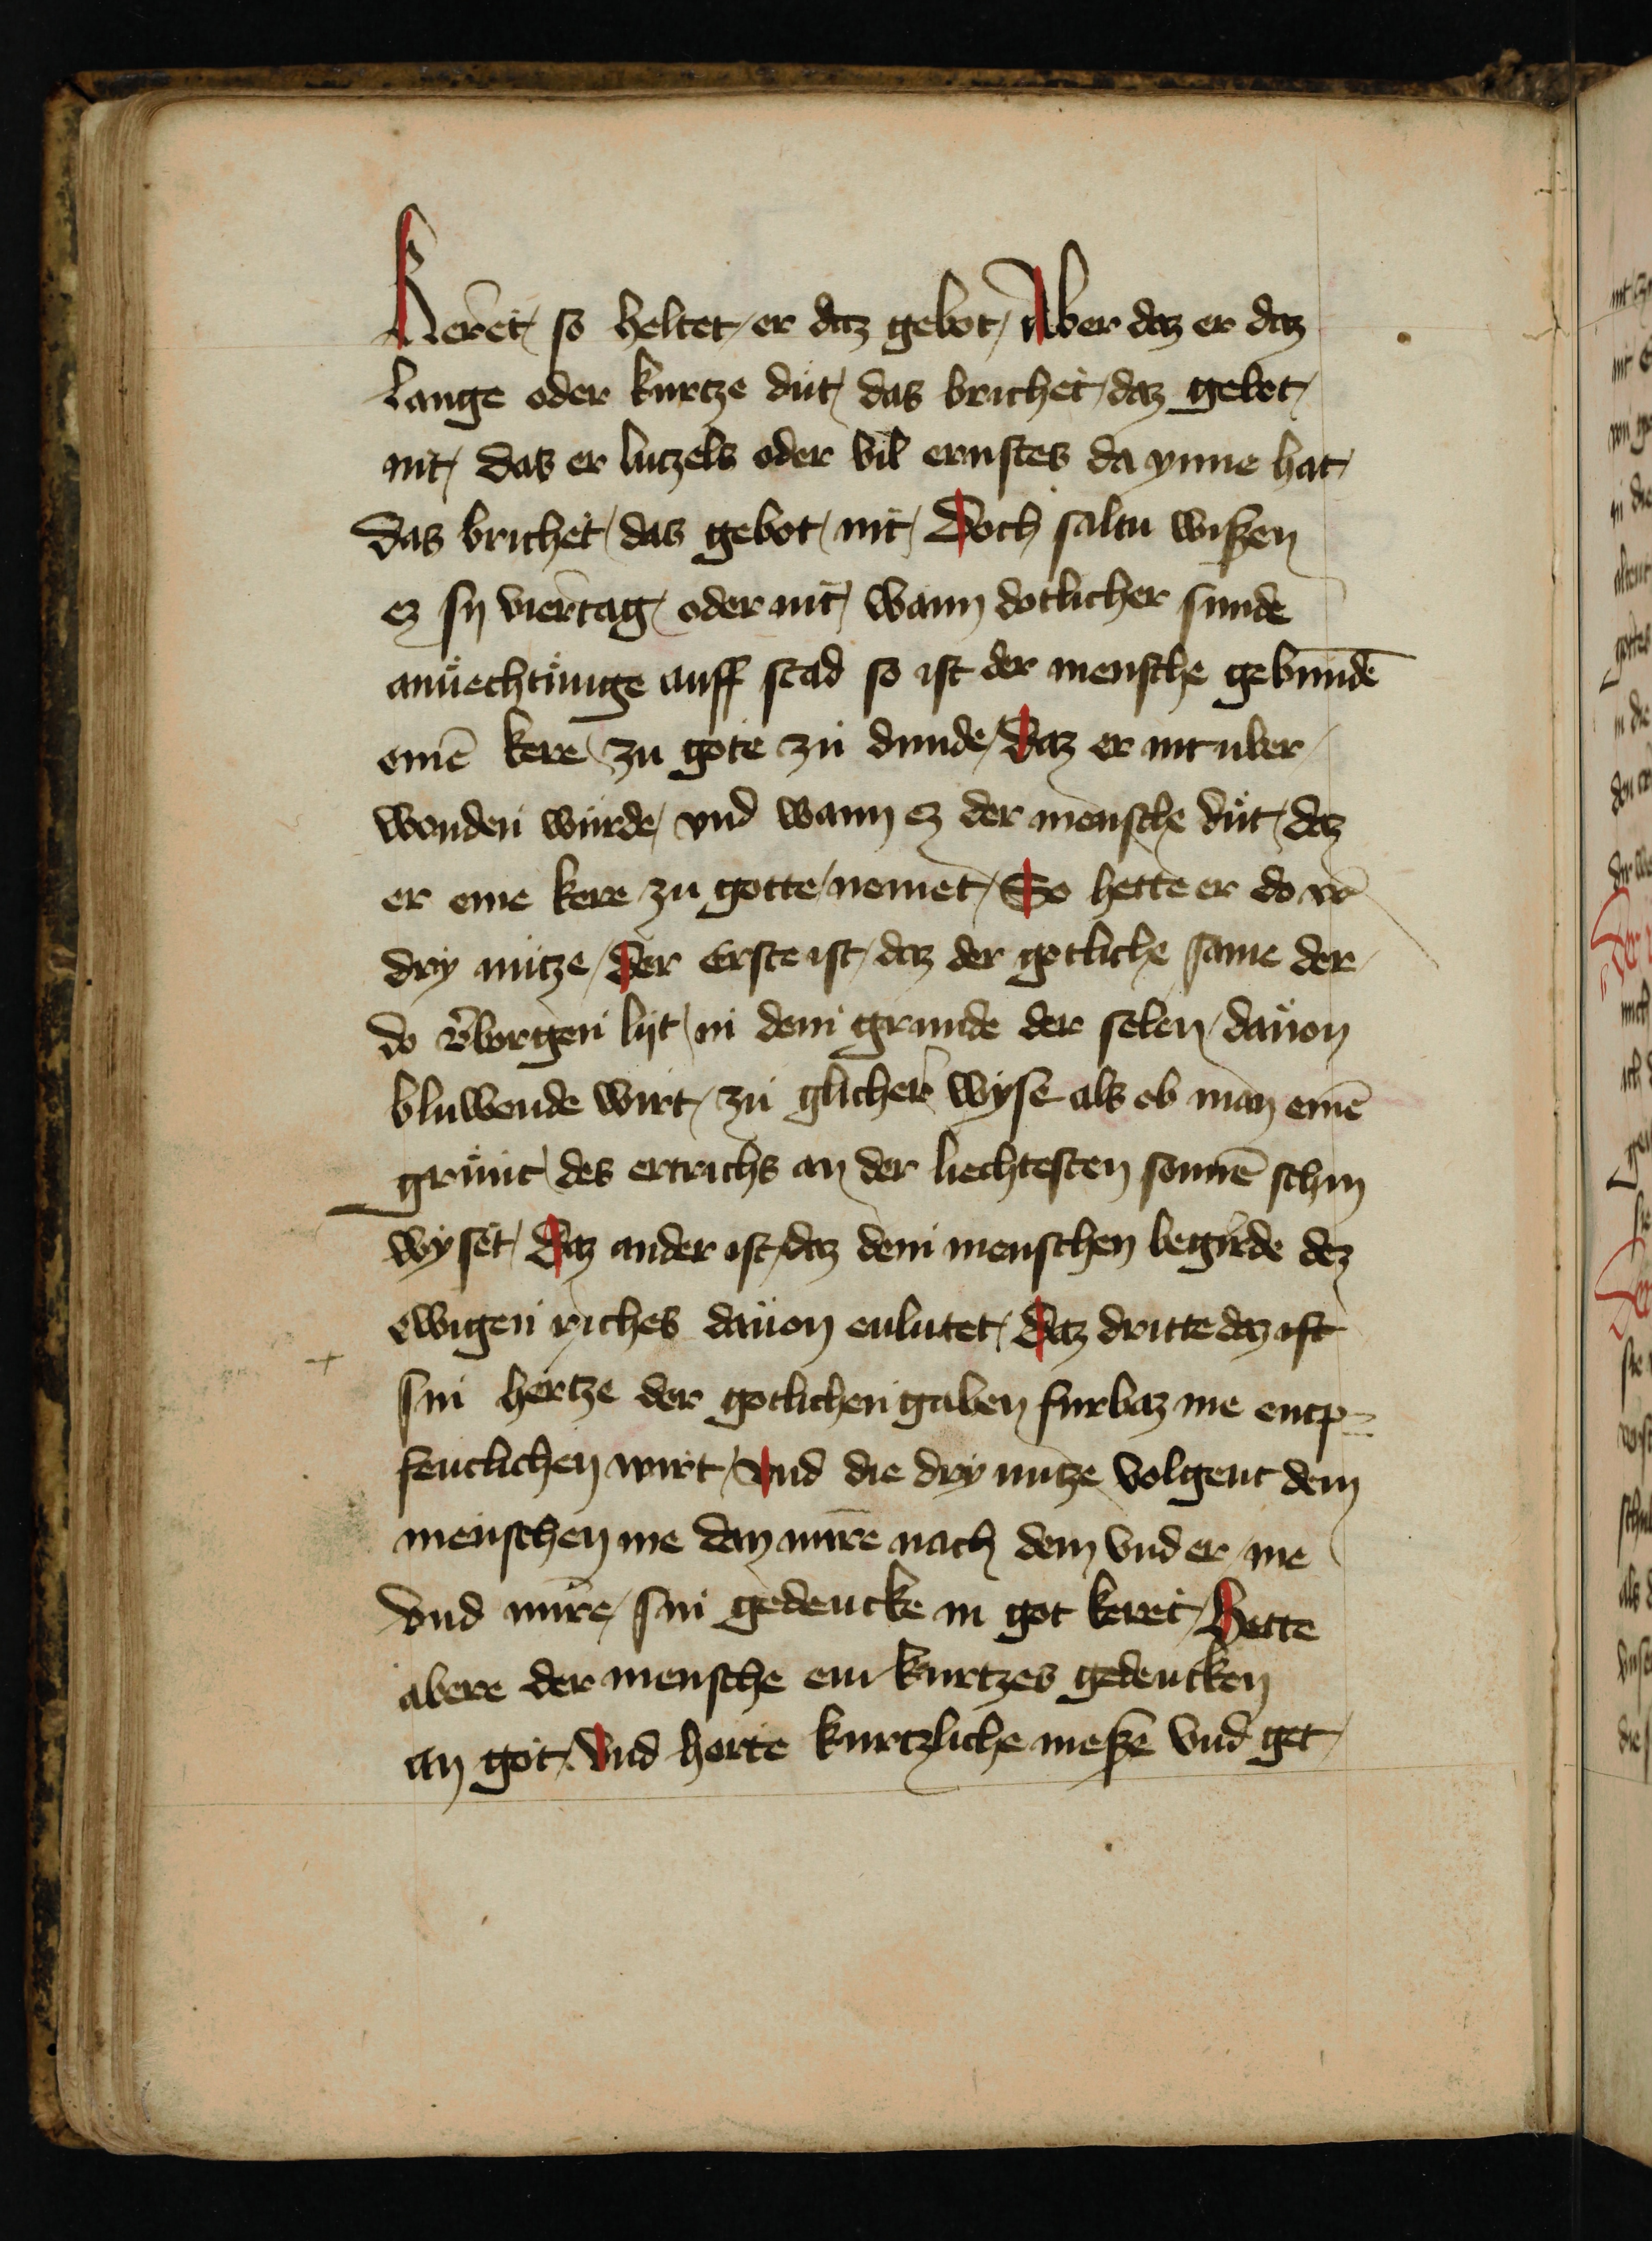 Keret / so heltet / er daz gebot / Aber daz er daz
lange oder kurtze dut / das brichet / daz gebot /
nit / das er lutzels oder vil ernstes da ynne hat /
das brichet / das gebot / nit / Doch saltu wißen
ez sy viertag / oder nit / wann dotlicher sunde
anuechtunge auff stad so ist der mensche gebundē
einē kere / zu gote zu dunde / Daz er nit uber /
wonden wurde / vnd wann ez der mensche dut / daz
er eine kere zu gotte / nemet / So hette er do vō
dry nutze / Der Erste ist / daz der gotliche same der /
do v̄borgen lyt / in dem grunde der selen / dauon
bluwende wirt / zu glicher wyse als ob man einē
grunt / des ertrichs an der liechtesten sonnē schin
wyset / Daz ander ist / daz dem menschen begirde dez
ewigen riches dauon enlutet / Daz dritte daz ist
sin hertze der gotlichen gaben furbaz me entp=
fenclichen wirt / Vnd die dry nutze volgent dem
menschen me dan mīre nach dem vnd er / me
vnd mīre / sin gedencke in got keret / Hette
abere der mensche ein kurtzes gedencken
an got / Vnd horte kurtzliche meßē vnd get /